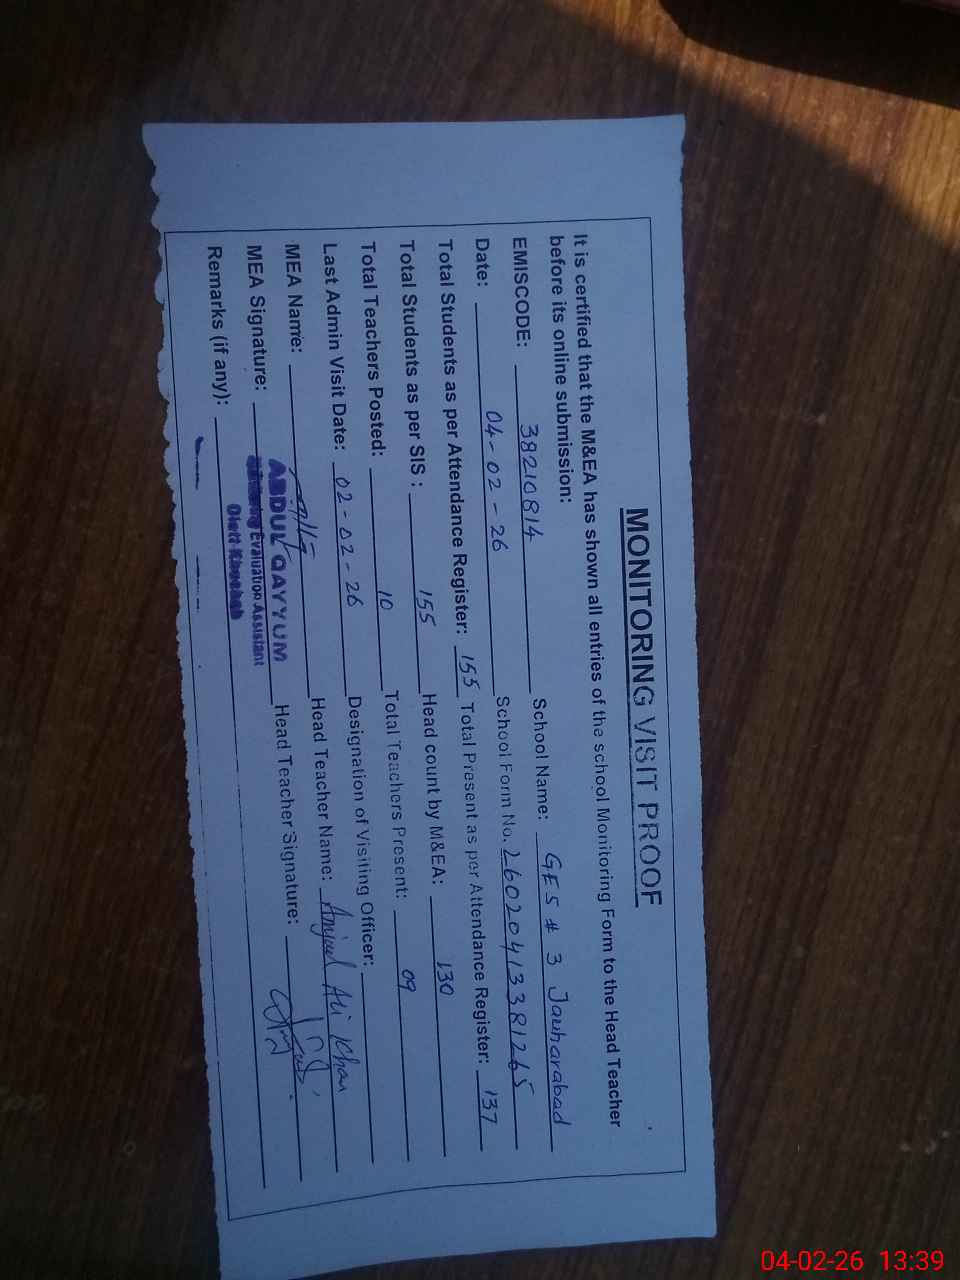 MONITORING VISIT PROOF
It is certified that the M&EA has shown all entries of the school Monitoring Form to the Head Teacher
before its online submission:
EMISCODE: 38210814 School Name: GES # 3 Jauharabad
Date: 04-02-26 School Form No. 26020413381265
Total Students as per Attendance Register: 155 Total Present as per Attendance Register: 137
Total Students as per SIS : 155 Head count by M&EA: 130
Total Teachers Posted: 10 Total Teachers Present: 09
Last Admin Visit Date: 02-02-26 Designation of Visiting Officer:
MEA Name: Head Teacher Name: Amjad Ali Khan
MEA Signature: ABDUL QAYYUM Head Teacher Signature:
Evaluation Assistant
Remarks (if any): Distt Khushab
04-02-26 13:39